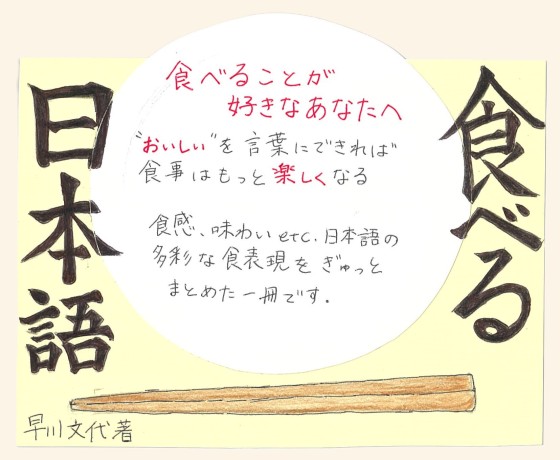 食べる
日本語
食べることが
好きなあなたへ
"おいしい"を言葉にできれば
食事はもっと楽しくなる
食感、味わいetc.日本語の
多彩な食表現をぎゅっと
まとめた一冊です.
早川文代著